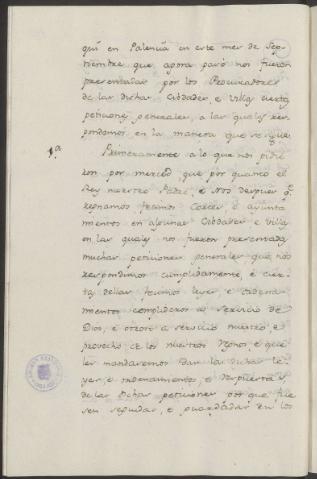 qui en Palencia en este mes de Sep-
tiembre que agora pasó nos fueron
presentadas por los Procuradores
de las dichas Cibdades e Villas ciertas
peticiones generales, a las quales res-
pondemos en la manera que se sigue
1.a Primeramente a lo que nos pidie-
ron por merced que por quanto el
Rey nuestro Padre, e Nos despues q.e
regnamos fecimos Cortes e ayunta-
mientos en algunas Cibdades e Villas
en las quales nos fueron presentadas
muchas peticiones generales que nos
respondimos cumplidamente, e cier-
tas dellas fecimos leyes, e ordena-
mientos complideros al servicio de
Dios, e otrosi a servicio nuestro, e
provecho de los nuestros Regnos, e que
les mandasemos dar las dichas le-
yes, e ordenamientos, e respuestas
de las dichas peticiones por que fue-
sen seguidas, e guardadas en los